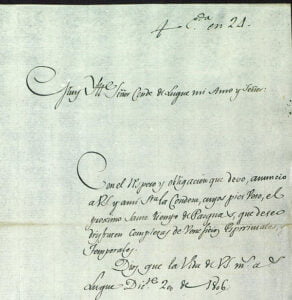 en 24.
Muy Ytt.e Señor Conde de Luque mi Amo y Señor:
Con el respeto y obligacion que devo, anuncio
a VS y a mi S.ra la Condesa, cuyos pies veso, el
proximo Santo tiempo de Pasqua, que deseo
disfruten completas de venefisios Espirituales, y
temporales.
Dios gue la Vida de VS m.s a.s
Luque Dic.re 20 de 1806.